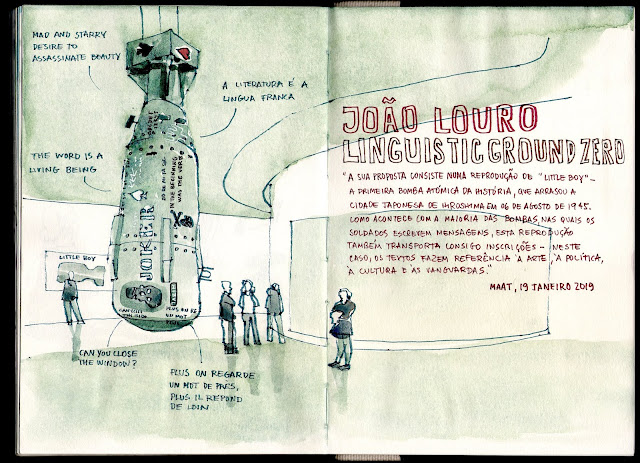 MAD AND STARRY
DESIRE TO
ASSASSINATE BEAUTY
A LITERATURA É A
LINGUA FRANCA
THE WORD IS A
LIVING BEING
LITTLE BOY
JOKER
IN THE BEGINNING
WAS THE VERB
CAN YOU CLOSE
THE WINDOW?
PLUS ON REGARDE
UN MOT DE PRÈS,
PLUS IL REPOND
DE LOIN
PLUS ON RE
UN MOT
JOÃO LOURO
LINGUISTIC GROUND ZERO
"A SUA PROPOSTA CONSISTE NUMA REPRODUÇÃO DE "LITTLE BOY" –
A PRIMEIRA BOMBA ATÓMICA DA HISTÓRIA, QUE ARRASOU A
CIDADE JAPONESA DE HIROSHIMA EM 06 DE AGOSTO DE 1945.
COMO ACONTECE COM A MAIORIA DAS BOMBAS, NAS QUAIS OS
SOLDADOS ESCREVEM MENSAGENS, ESTA REPRODUÇÃO
TAMBÉM TRANSPORTA CONSIGO INSCRIÇÕES – NESTE
CASO, OS TEXTOS FAZEM REFERÊNCIA À ARTE, À POLÍTICA,
À CULTURA E ÀS VANGUARDAS."
MAAT, 19 JANEIRO 2019